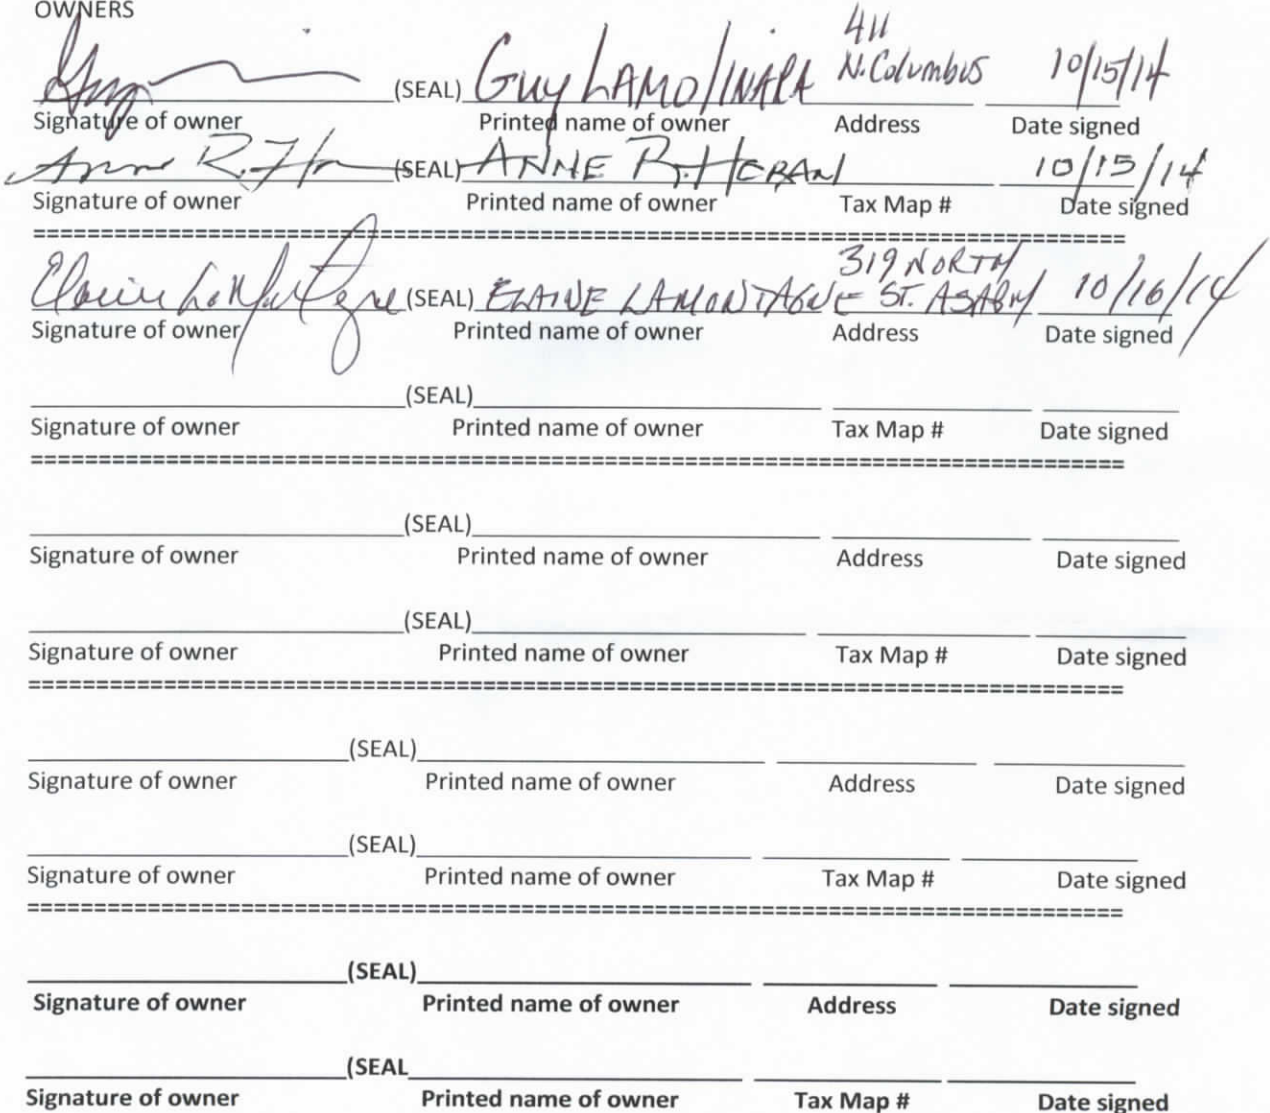 OWNERS
411
N. Columbus
(SEAL) GUY LAMOLINARA 10/15/14
Signature of owner Printed name of owner Address Date signed
Anne R. (SEAL) ANNE R. HORAN 10/15/14
Signature of owner Printed name of owner Tax Map # Date signed
=================================================================================
319 NORTH
Elaine LaMontagne (SEAL) ELAINE LAMONTAGNE ST. ASAPH 10/16/14
Signature of owner Printed name of owner Address Date signed
(SEAL)
Signature of owner Printed name of owner Tax Map # Date signed
=================================================================================
(SEAL)
Signature of owner Printed name of owner Address Date signed
(SEAL)
Signature of owner Printed name of owner Tax Map # Date signed
=================================================================================
(SEAL)
Signature of owner Printed name of owner Address Date signed
(SEAL)
Signature of owner Printed name of owner Tax Map # Date signed
=================================================================================
(SEAL)
Signature of owner Printed name of owner Address Date signed
(SEAL
Signature of owner Printed name of owner Tax Map # Date signed